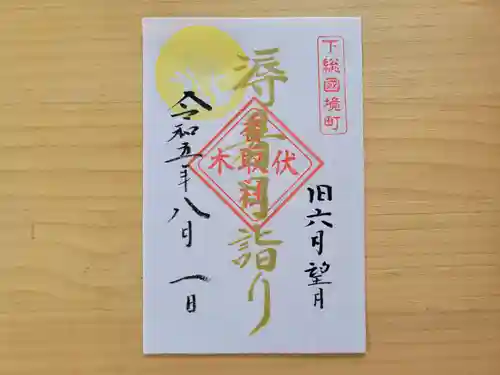 下総國境町
旧六月望月
溽暑月詣り
香取神社
伏木
令和五年八月一日